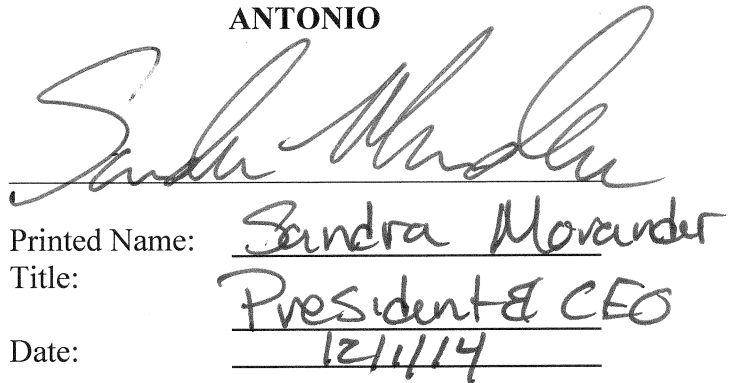 ANTONIO
Printed Name: Sandra Morander
Title: President & CEO
Date: 12/1/14